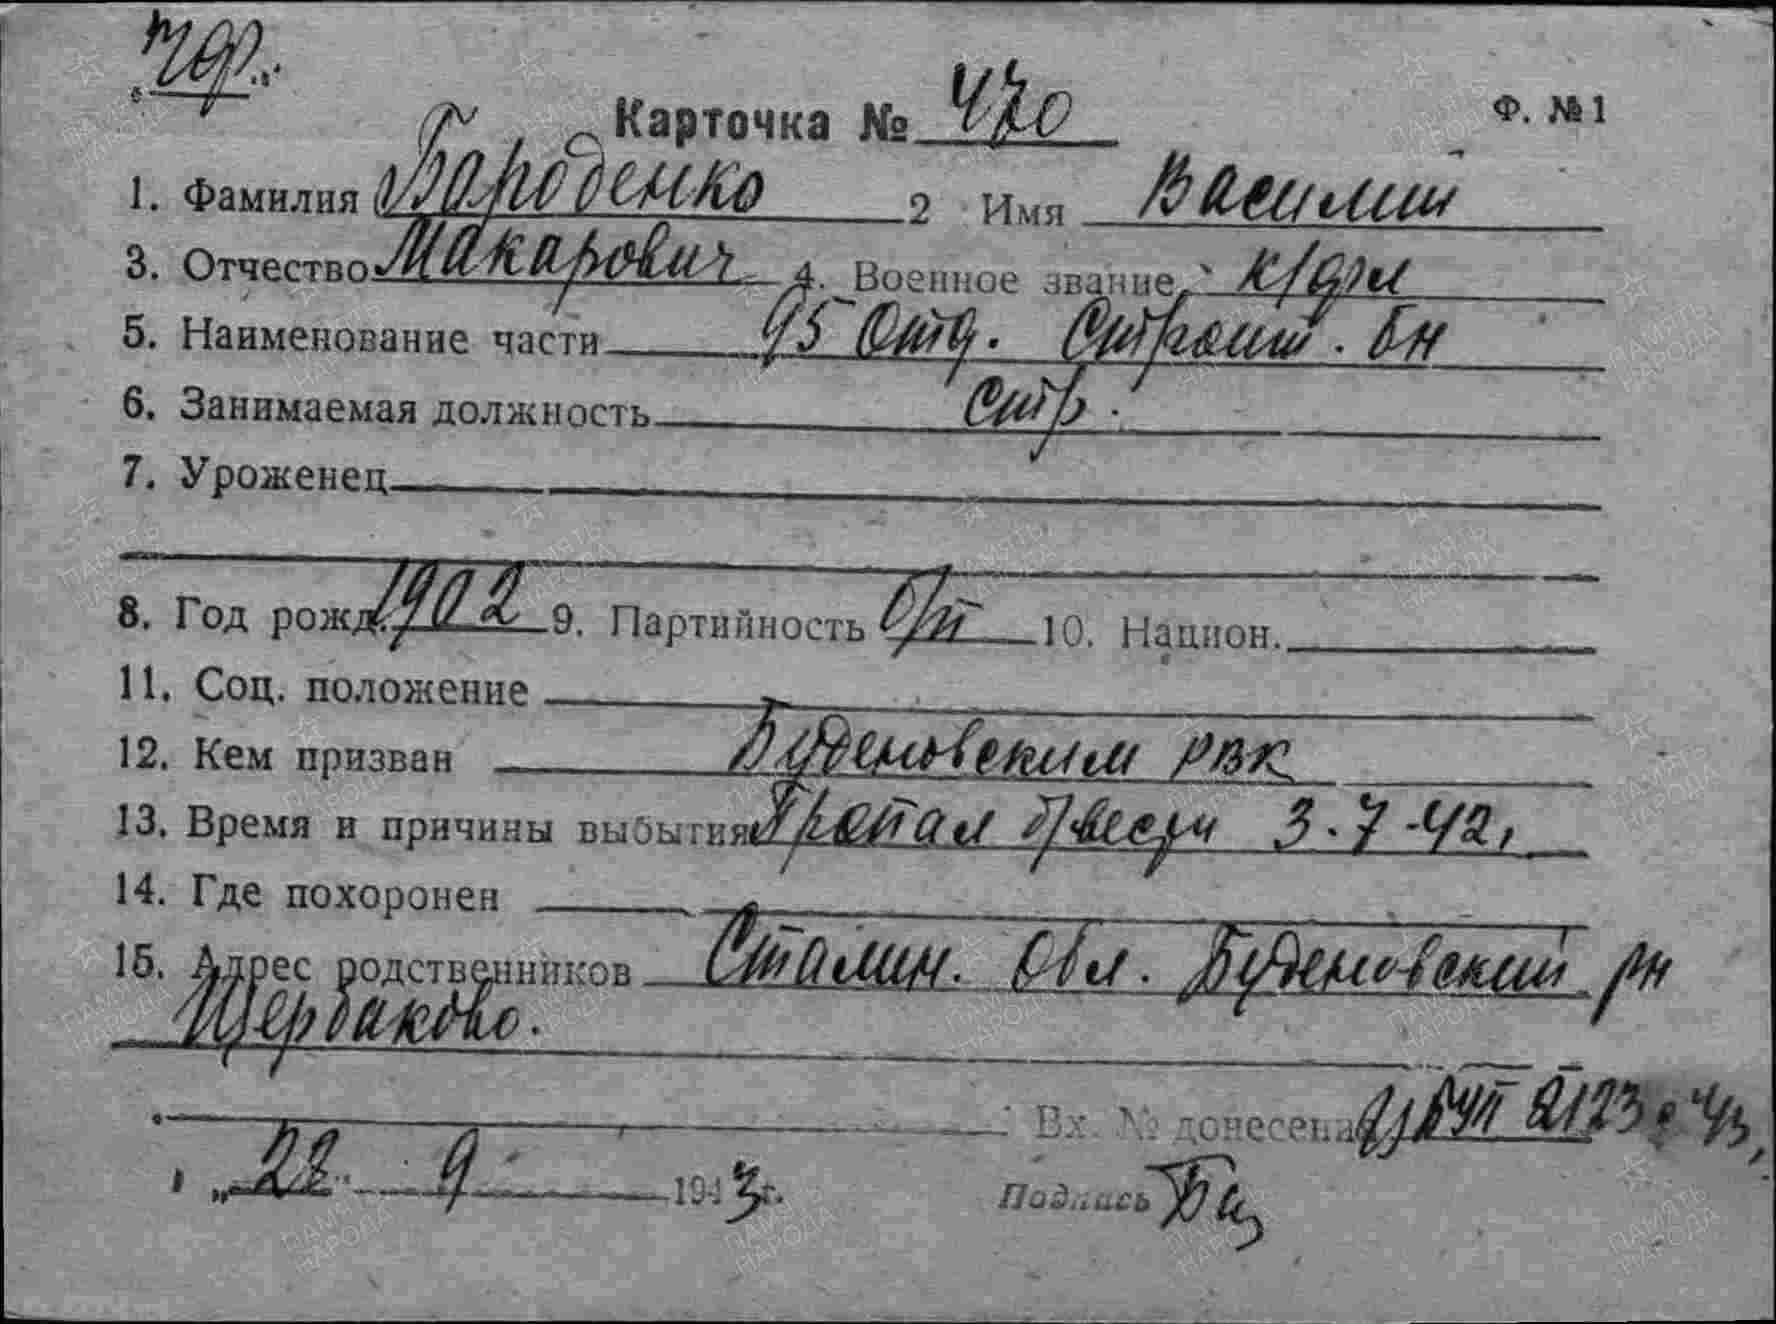 Карточка № 470
Ф. №1
1. Фамилия Бароденко 2 Имя Василий
3. Отчество Макарович 4. Военное звание к/арм
5. Наименование части 95 Отд. Строит. бн
6. Занимаемая должность Стр.
7. Уроженец
8. Год рожд. 1902 9. Партийность б/п 10. Национ.
11. Соц. положение
12. Кем призван Буденовским РВК
13. Время и причины выбытия Пропал б/вести 3.7.42,
14. Где похоронен
15. Адрес родственников Сталин. Обл. Буденовский рн
Щербаково.
Вх. № донесения 2123 43
„22" 9 1943г. Подпись